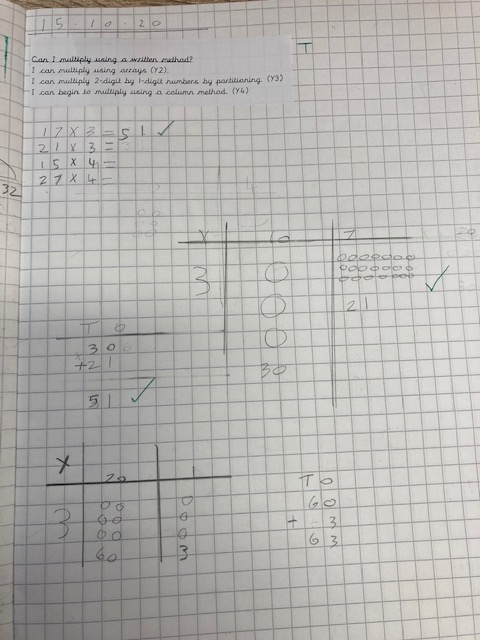 15.10.20
T
Can I multiply using a written method?
I can multiply using arrays (Y2).
I can multiply 2-digit by 1-digit numbers by partitioning. (Y3)
I can begin to multiply using a column method. (Y4)
17 x 3 = 51 ✓
21 x 3 =
15 x 4 =
27 x 4 =
32
x 10 7
3
21
30
T O
30
+21
51 ✓
x 20 1
3
60 3
T O
60
+ 3
63